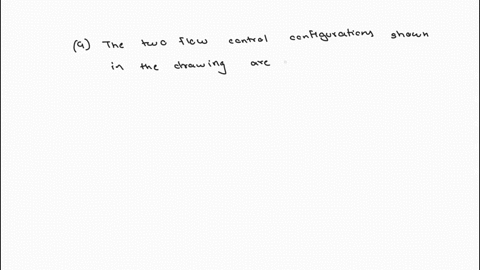 (a) The two flow control configurations shown
in the drawing are